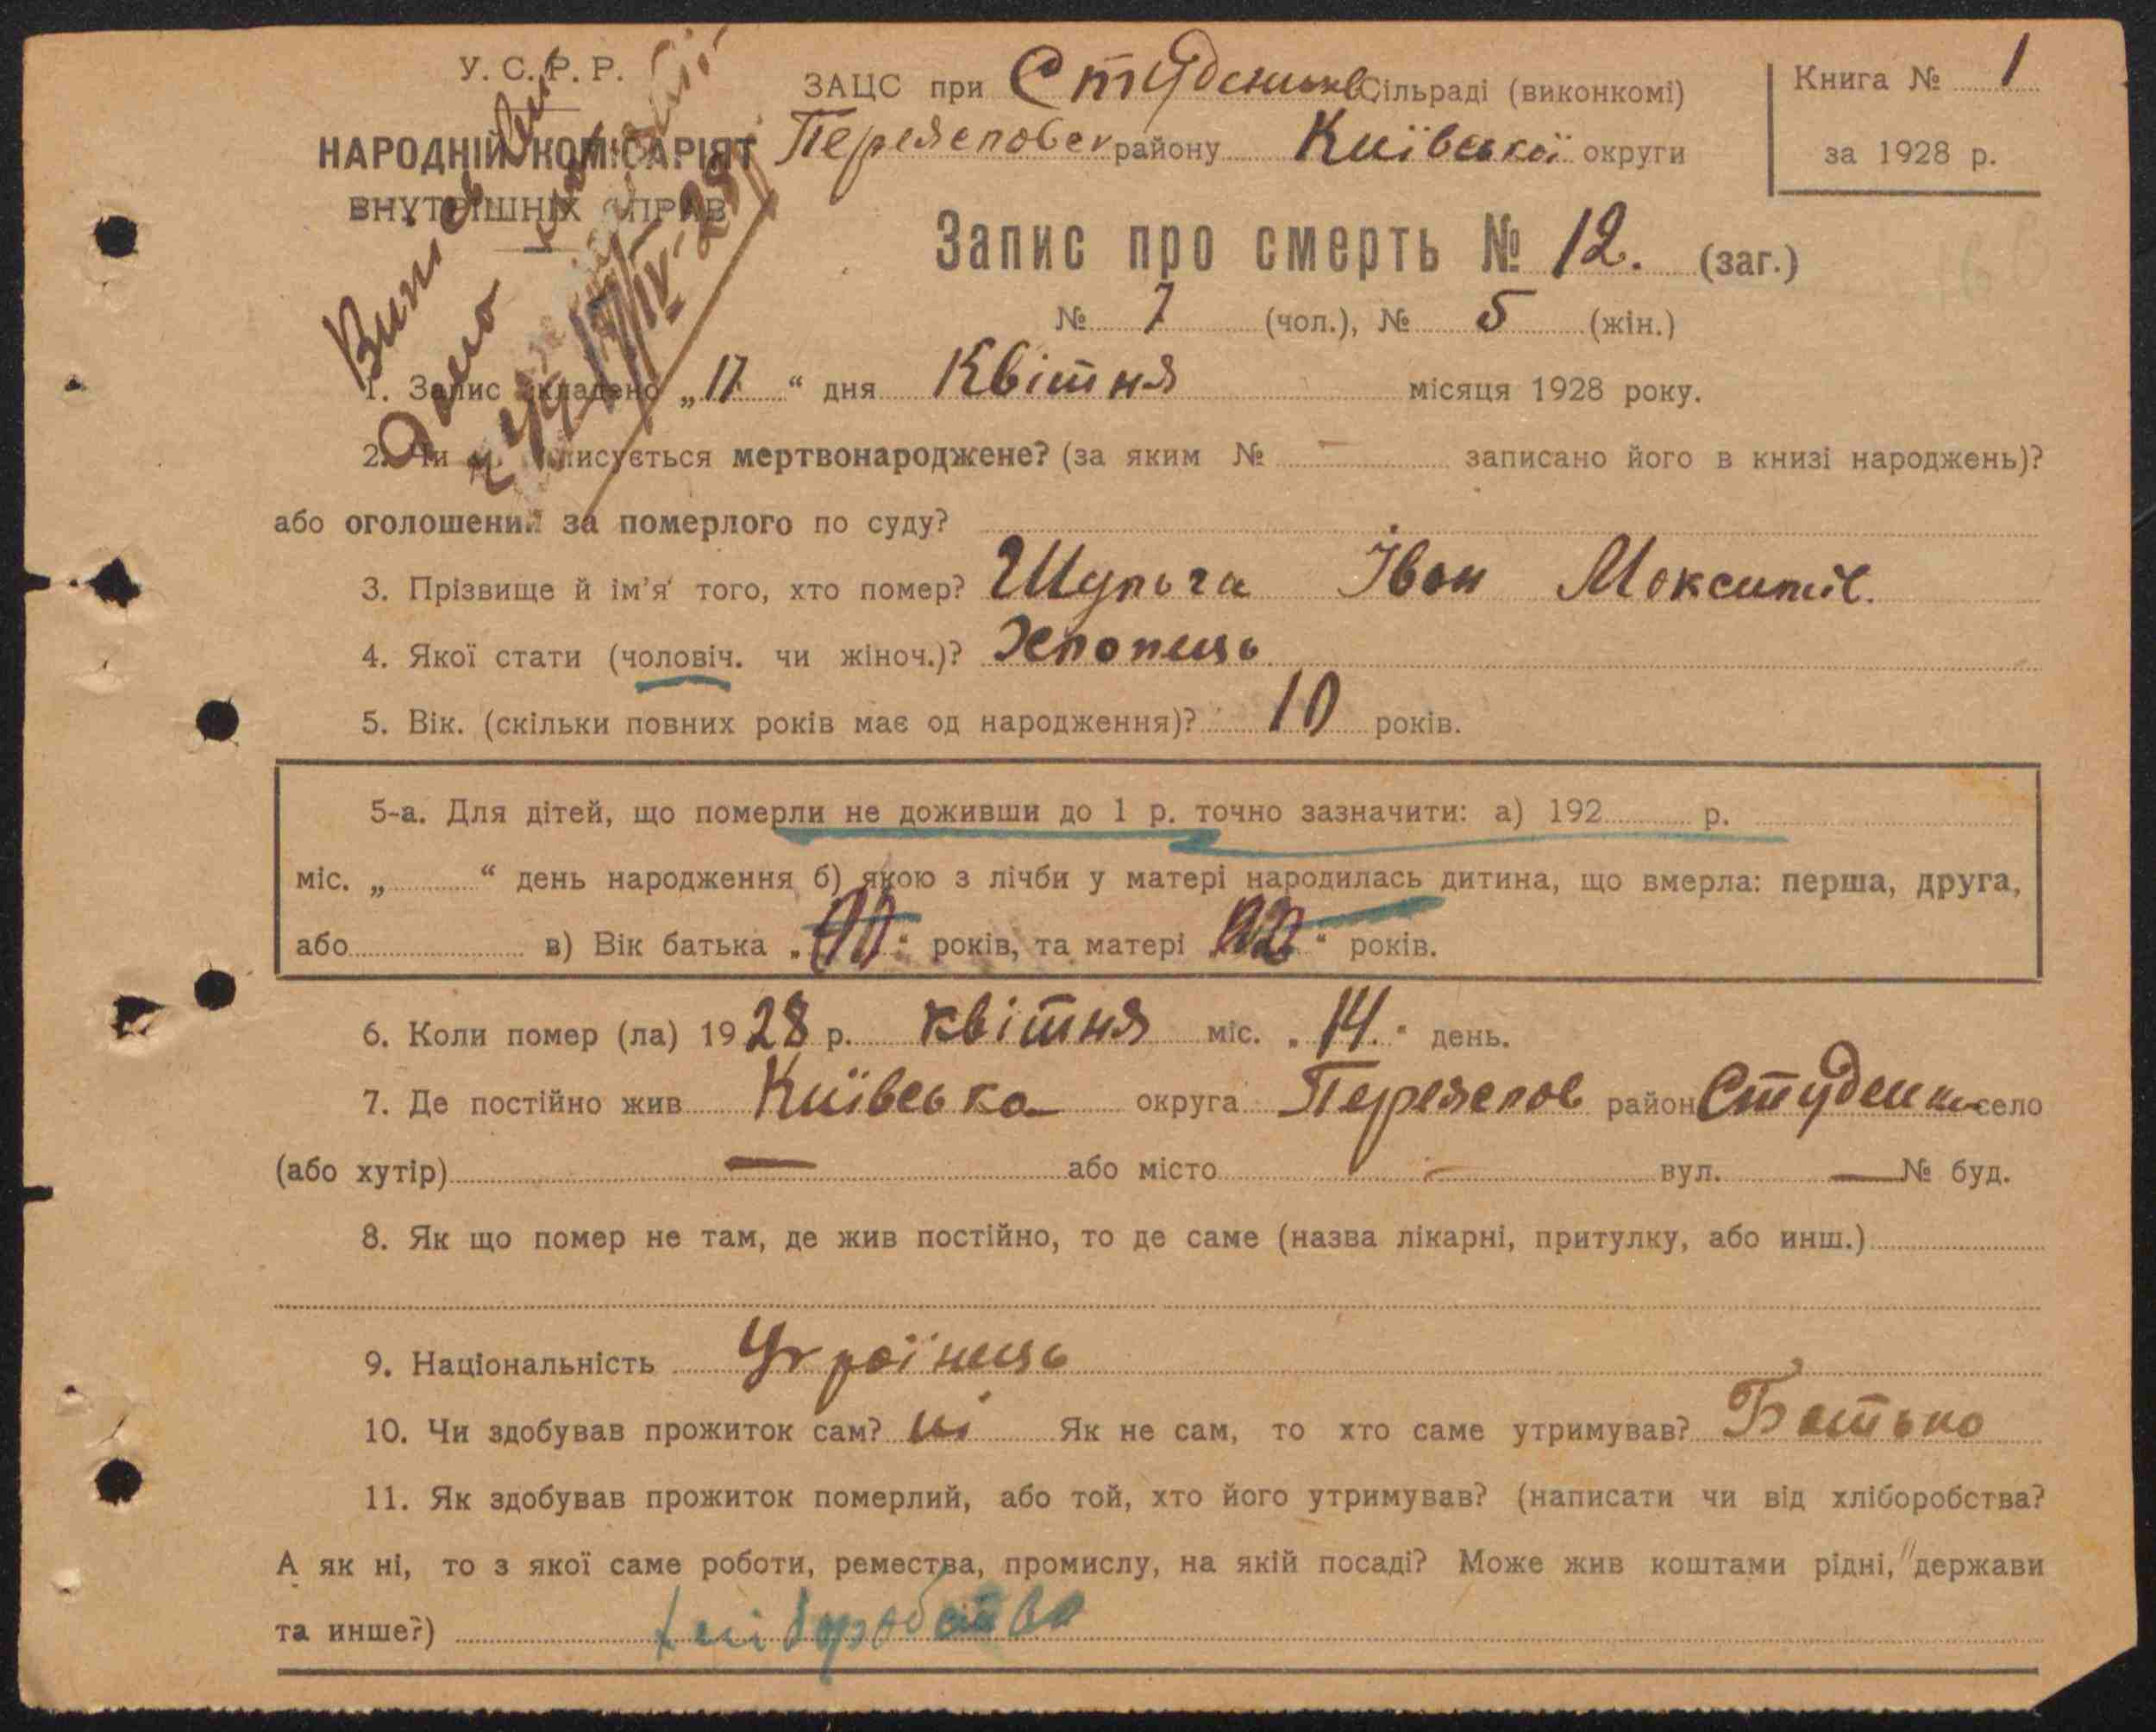 У. С. Р. Р.
НАРОДНІЙ КОМІСАРІЯТ
ВНУТРІШНІХ СПРАВ
ЗАЦС при Студеників Сільраді (виконкомі)
Переясловск району Київської округи
Книга № 1
за 1928 р.
Запис про смерть № 12. (заг.)
№ 7 (чол.), № 5 (жін.)
1. Запис складено „17“ дня Квітня місяця 1928 року.
2. Чи не записується мертвонароджене? (за яким № – записано його в книзі народжень)?
або оголошений за померлого по суду?
3. Прізвище й ім'я того, хто помер? Шульга Іван Максимів.
4. Якої стати (чоловіч. чи жіноч.)? Хлопець
5. Вік. (скільки повних років має од народження)? 10 років.
5-а. Для дітей, що померли не доживши до 1 р. точно зазначити: а) 192 р.
міс. „ “ день народження б) якою з лічби у матері народилась дитина, що вмерла: перша, друга,
або в) Вік батька „ “ років, та матері „ “ років.
6. Коли помер (ла) 1928 р. квітня міс. „14.“ день.
7. Де постійно жив Київська округа Переяслов район Студеник село
(або хутір) — або місто – вул. — № буд.
8. Як що помер не там, де жив постійно, то де саме (назва лікарні, притулку, або инш.)
9. Національність Українець
10. Чи здобував прожиток сам? ні Як не сам, то хто саме утримував? Батько
11. Як здобував прожиток померлий, або той, хто його утримував? (написати чи від хліборобства?
А як ні, то з якої саме роботи, ремества, промислу, на якій посаді? Може жив коштами рідні, держави
та инше?) хліборобство